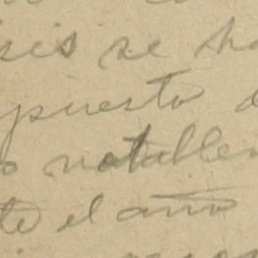 sis se ha
puesto d
o notable
te el año